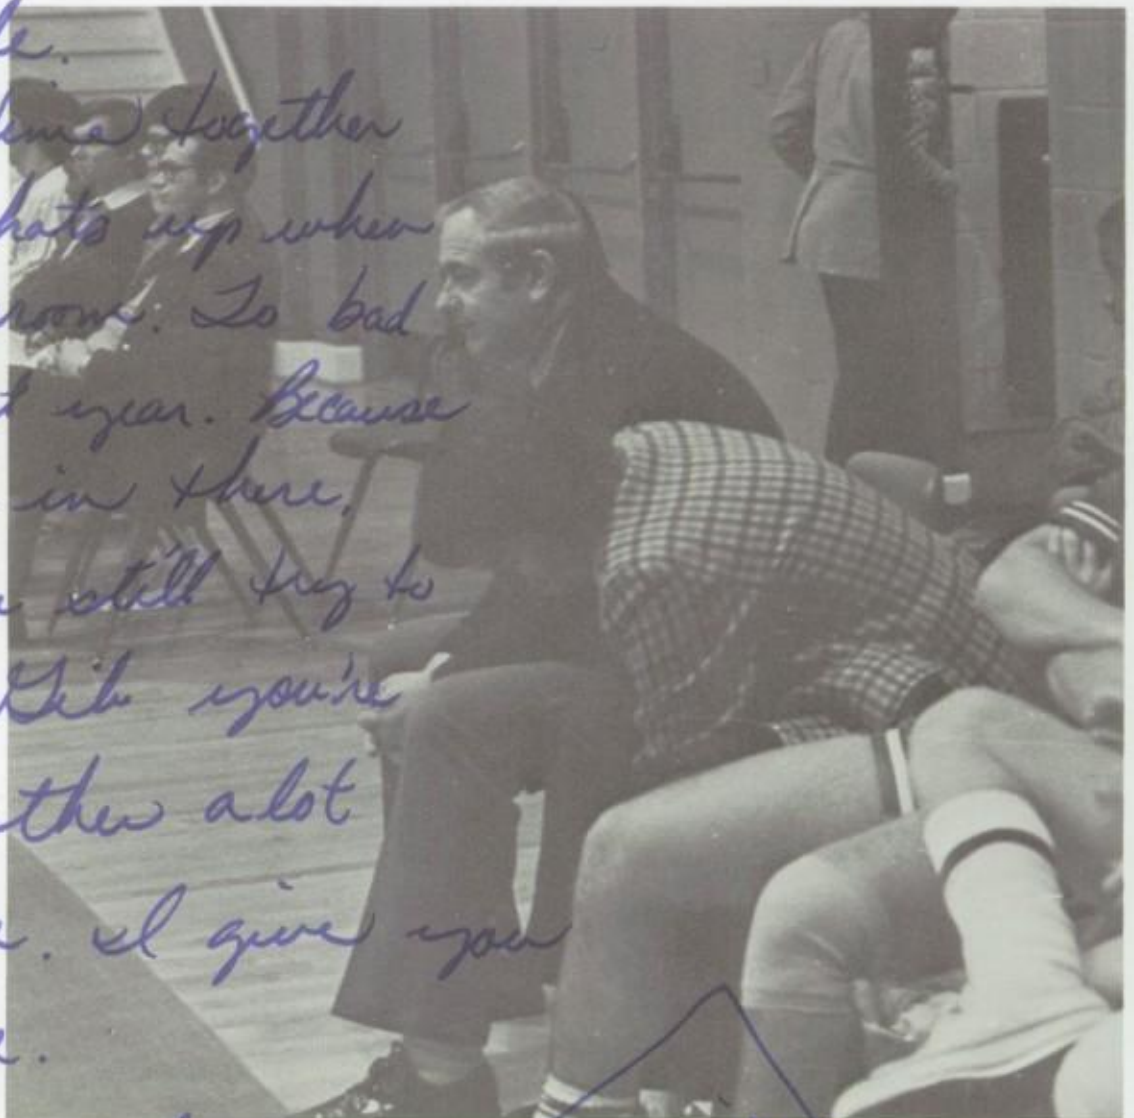 le.
time together
hats up when
room. To bad
t year. Because
in there,
still try to
you're
ther alot
. I give you
e.